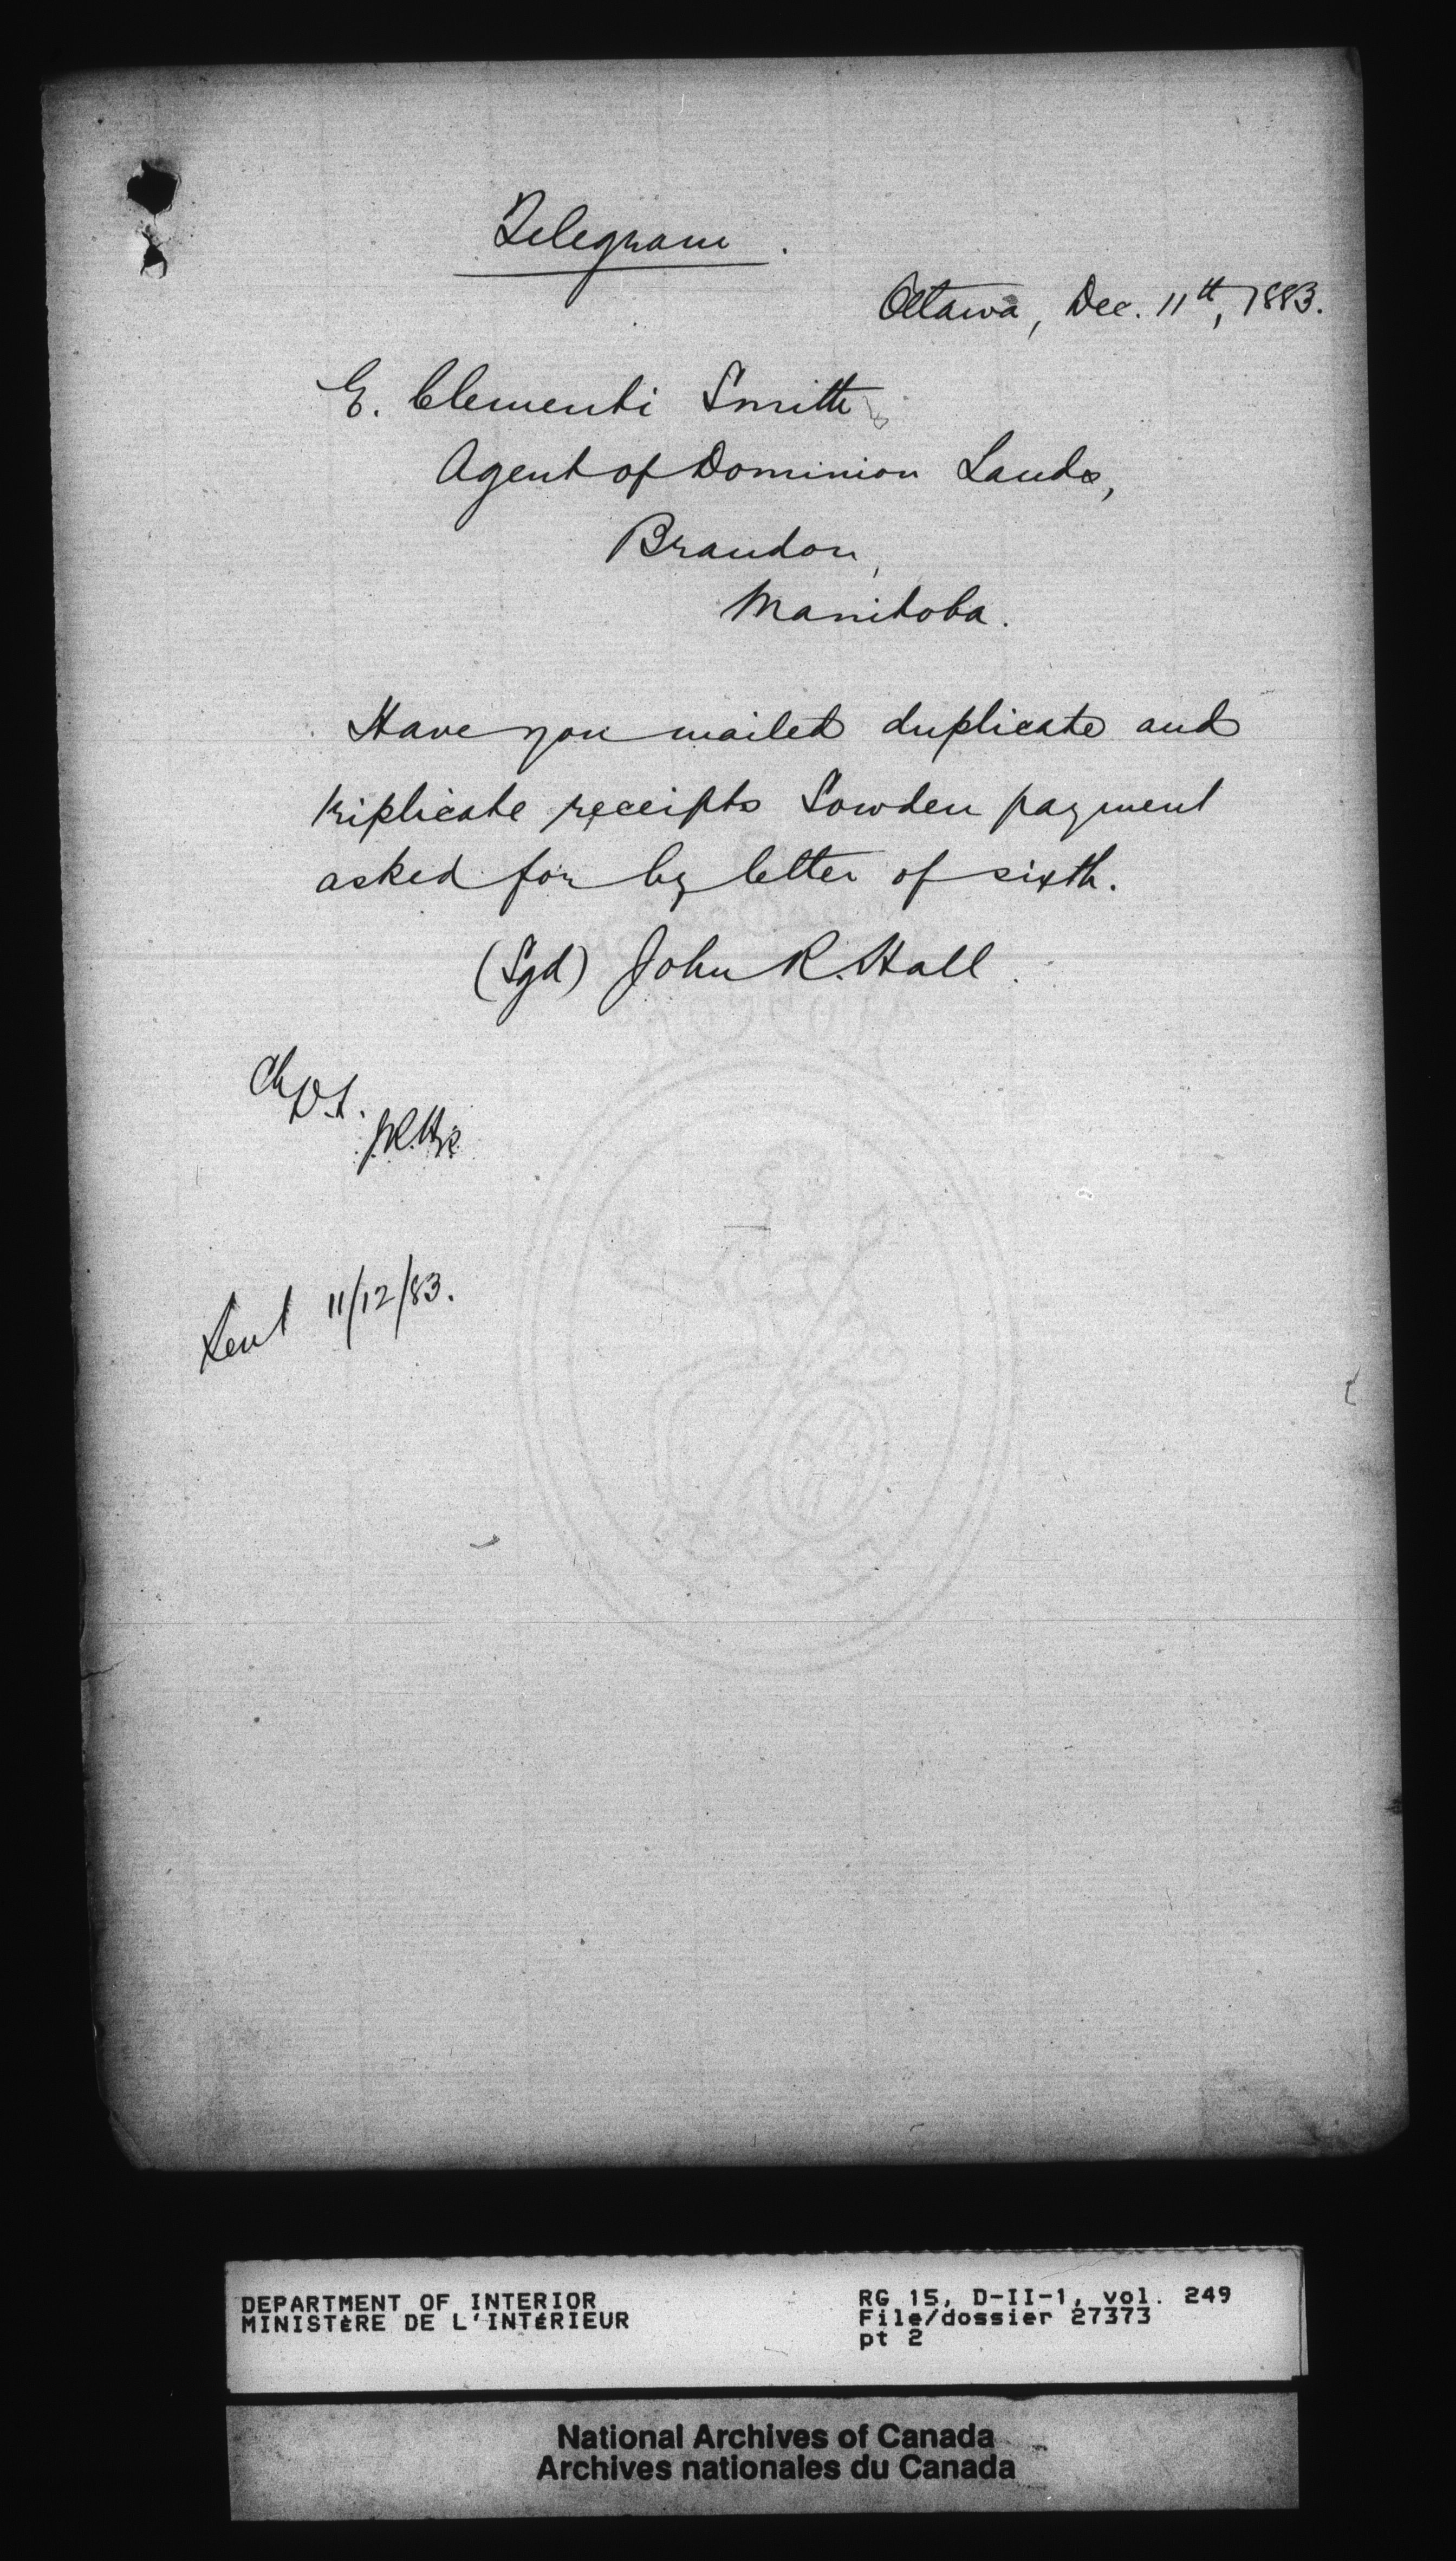 Telegram.
Ottawa, Dec. 11th, 1883.
E. Clementi Smith
Agent of Dominion Lands,
Brandon,
Manitoba.
Have you mailed duplicate and
triplicate receipts Sowden payment
asked for by letter of sixth.
(Sgd) John R. Hall.
Sent 11/12/83.
DEPARTMENT OF INTERIOR
MINISTÈRE DE L'INTÉRIEUR
RG 15, D-II-1, vol. 249
File/dossier 27373
pt 2
National Archives of Canada
Archives nationales du Canada